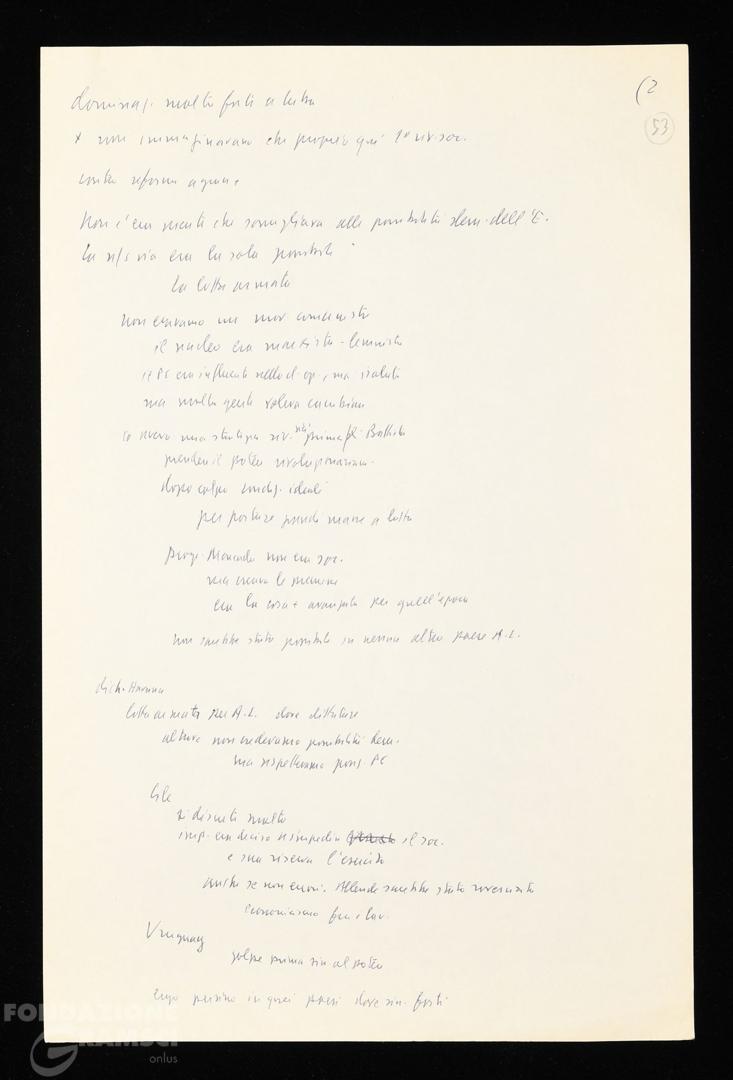 (2
53
dominaz. molto forti a Cuba
x non immaginavano che proprio qui 1ª riv. soc.
contro riforma agraria
Non c'era niente che somigliava alle possibilità dem. dell'E.
La n/s via era la sola possibile
la lotta armata
Non eravamo un mov. comunista
il nucleo era marxista-leninista
il PC era influente nella cl. op., ma isolato
ma molta gente voleva cambiare
io avevo una strategia riv. già prima di Batista
prendere il potere rivoluzionariam.
dopo colpo condiz. ideali
per portare grandi masse a lotta
Progr. Moncada non era soc.
ma creava le premesse
era la cosa + avanzata per quell'epoca
non sarebbe stato possibile in nessun altro paese A.L.
dich. Havana
lotta armata per A.L. dove dittature
allora non vedevamo possibilità dem.
ma rispettavamo posiz. PC
Cile
si discute molto
imp. era deciso a impedire il soc.
e sua riserva l'esercito
anche se non errori. Allende sarebbe stato rovesciato
economicismo fra i lav.
Uruguay
golpe prima sin. al potere
ergo persino in quei paesi dove sin. forti
FONDAZIONE
GRAMSCI
onlus